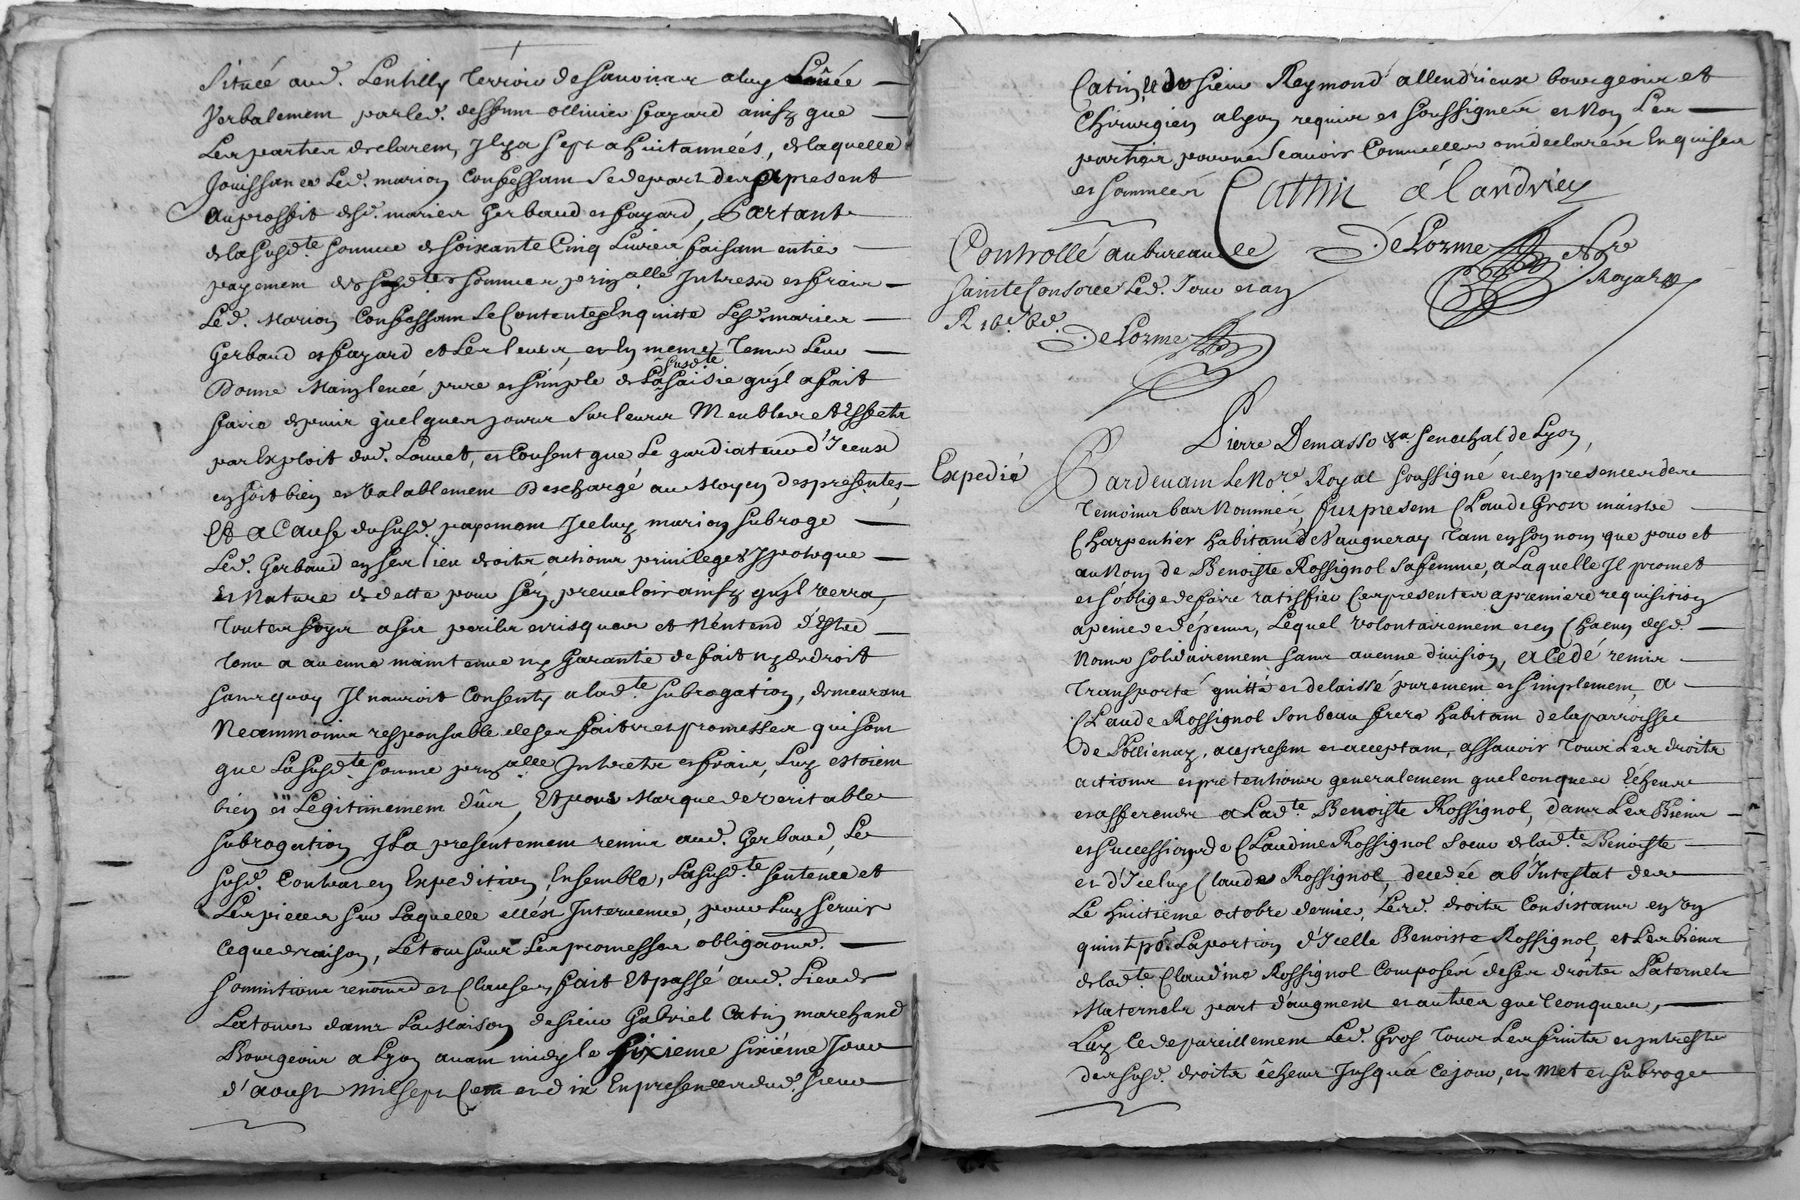 Situéé aud. Lentilly Terroir de Sauoinier aluy Louée
Verbalement par led. deffunt ollinier fayard ainsy que
Les parties declarent, Il y a sept a huit années, de laquelle
Jouissance Led. marion Confessant se depart des apresent
au proffit desd. mariés Gerbaud et fayard, Partant
de la susd.te somme de soixante Cinq Liures faisant entier
payement des susd.tes sommes prinalle Interest et frais
Led. Marion Confessant Le Contente, Enquitte Lesd. mariés
Gerbaud et fayard et Les leurs, et En meme Tems Leur
Donne Mainleuéé pure et simple de La susd.te saisie qu'il a fait
faire depuis quelques jours sur leurs Meubles et Effects
par Exploit dud. Louuet, et Consent que Le gardiateur d'Iceux
en soit bien et Valablement Deschargé au Moyen des presentes,
Et a Cause du susd. payement Iceluy marion subroge
Led. Gerbaud en ses lieu droits actions priuileges Ypoteque
et Nature de dette pour s'en preualoir ainsy qu'il verra,
Toutes foys a ses perils et risques et N'entend d'Estre
Tenu a aucune maintenue ny Garantie de fait ny de droit
sans quoy Il n'auroit Consenty a lad.te subrogation, demeurant
Neammoins responsable de ses faits et promesses qui sont
que La susd.te somme prinalle Interets et frais, Luy estoient
bien et Legitimement dûes, Et pour Marque de veritable
subrogation Il a presentement remis aud. Gerbaud, Le
susd. Contrat en Expedition, Ensemble, La susd.te sentence et
Les pieces sur Laquelle ellest Interuenue, pour Luy seruir
Ce que de raison, Le tout sous Les promesses obliga.ons d.
soumitions renon.ons et Clauses, fait Et passé aud. Lieu de
Latour dans La Maison de sieur Gabriel Catin marchand
Bourgeois a Lyon auant midy le Sixieme sixiéme Jour
d'aoust Mil sept Cent et dix En presence dud. sieur
Catin, et de sieur Reymond allendrieux bourgeois et
Chirurgien a Lyon requis et soussignéz et Non Les
parties pour ne scauoir Comm'elles ont declaré Enquises
et sommeés Cathin alandrieu
Controllé au bureau de DeLorme No.re
sainte Consorce Led. Jour et an Royal
R 16s 6d.
DeLorme
Pierre Demasso &a senechal de Lyon,
Expedié Pardeuant Le No.re Royal soussigné et en presence des
Temoins bas Nommés, fut present CLaude Gros maistre
Charpentier habitant de Vaugneray tant en son nom que pour et
au Nom de Benoiste Rossignol sa femme, a Laquelle Il promet
et s'oblige de faire ratiffier Ces presentes a premiere requisition
a peine de depens, Lequel volontairement et en Chacun desd.
Noms solidairement sans aucune diuision, a Cedé remis
Transporté quitté et delaissé purement et simplement, a
CLaude Rossignol son beau frere habitant de la parroisse
de Pollienay, acy present et acceptant, assauoir Tous Les droits
actions et pretentions generalement quelconques Echeus
et afferents a Lad.te Benoiste Rossignol, dans Les Biens
et succession de CLaudine Rossignol soeur de lad.te Benoiste
et d'Iceluy Claude Rossignol, decedée ab'Intestat des
Le huitieme octobre dernier, Lesd. droits Consistant en Un
quint p.r La portion d'Icelle Benoiste Rossignol, et Les biens
de lad.te Claudine Rossignol Composés de ses droits Paternels
Maternels part d'augment et autres quelconques,
Luy Cede pareillement Led. Gros Tous Les fruits et Intrests
des susd. droits êcheus Jusqu'á Ce jour, et met et subroge